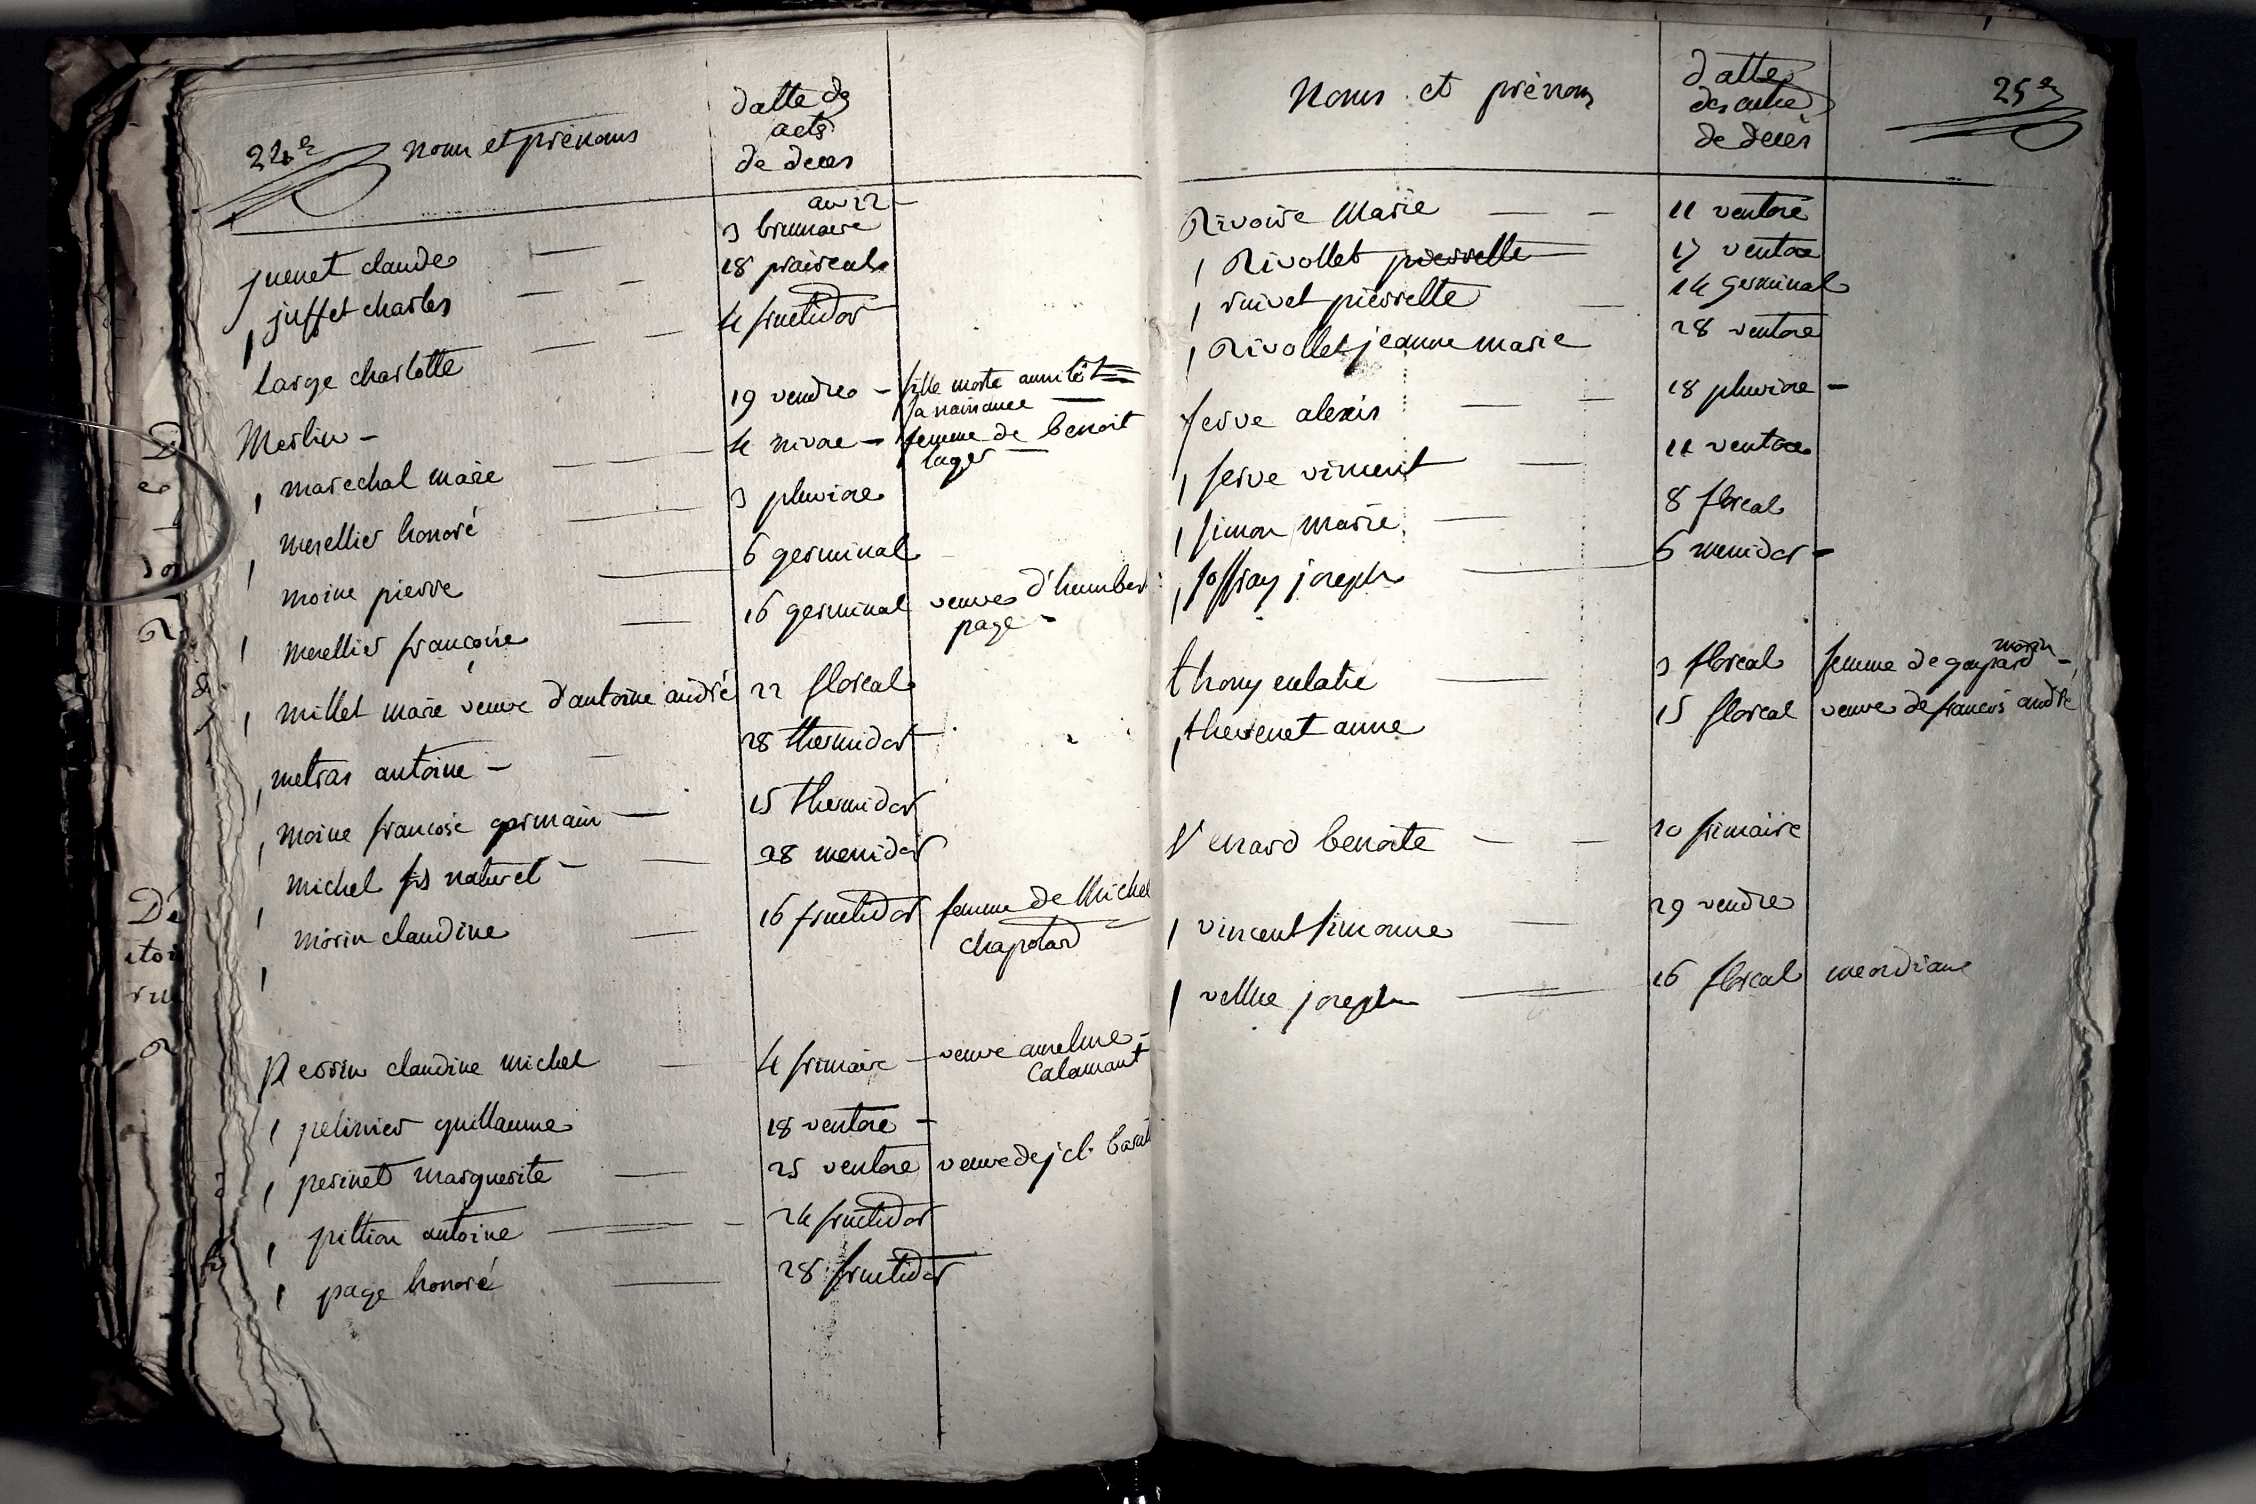 24e nom et prénoms datte des
acts
de deces
an 12
juenet claude 3 brumaire
juffet charles 18 prairéal
large charlotte 4 fructidor
Merlin - 19 vendre - fille morte aussitôt
sa naissance
marechal marie 4 nivose - femme de benoit
lager
merellier honoré 3 pluviose
moine pierre 6 germinal
merellier françoise 16 germinal veuve d'humbert
page -
millet marie veuve d'antoine andré 22 floreal
metras antoine - 28 thermidor
moine francois germain 15 thermidor
michel fils naturel - 28 messidor
morin claudine 16 fructidor femme de Michel
chapotard
Perrin claudine michel 4 frimaire - veuve anselme
Calamant
pelissier guillaume 18 ventose -
perinet marguerite 25 ventose veuve de j cl.
pittion antoine 24 fructidor
page honoré 28 fructidor
Noms et prénoms dattes
des actes
de decès
25e
Rivoire Marie 11 ventose
Rivollet pierrette 17 ventose
rivet pierrette 14 germinal
Rivollet jeanne marie 28 ventose
serve alexis 18 pluviose -
serve vincent 11 ventose
simon marie 8 floreal
joffray joseph 6 messidor -
thomy eulalie 3 floreal femme de gaspard morin -
thevenet anne 15 floreal veuve de francois andré
Venard benoite 20 frimaire
vincent simonne 29 vendre
joseph 16 floreal mendiant